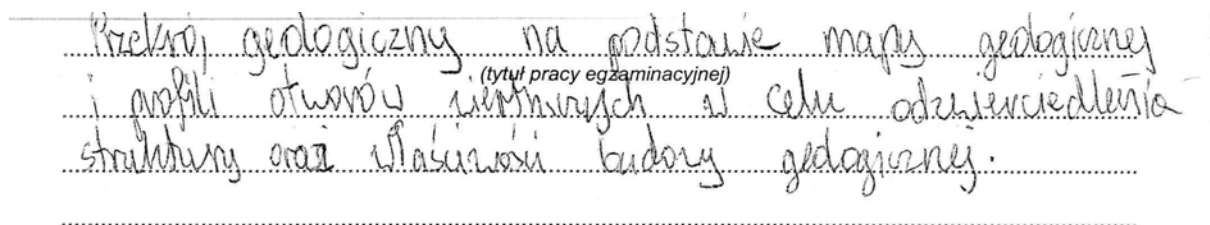 Przekrój geologiczny na podstawie mapy geologicznej
(tytuł pracy egzaminacyjnej)
i profili otworów wiertniczych w celu odzwierciedlenia
struktury oraz właściwości budowy geologicznej.